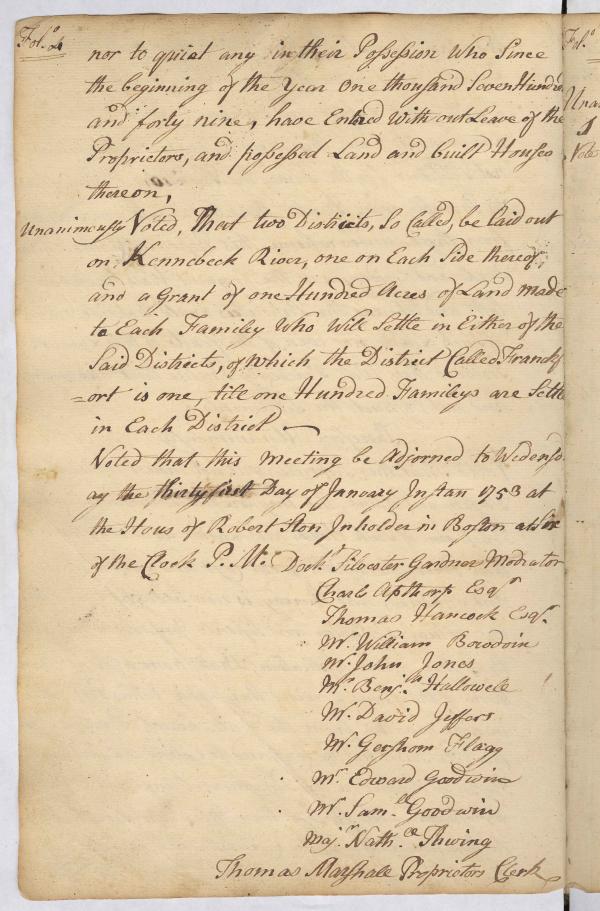 Fol.º 2
nor to quiat any in their Possession Who Since
the beginning of the Year One thousand Seven Hundred
and forty nine, have Entred With out Leave of the
Proprietors, and possessed Land and built Houses
thereon,
Unanimously Voted, That two Districts, So Called, be Laid out
on Kennebeck River, one on Each Side thereof;
and a Grant of one Hundred Acres of Land made
to Each Familey Who Will Settle in Either of the
Said Districts, of Which the District Called Franckf
=ort is one, till one Hundred Famileys are Settle
in Each District
Voted that this Meeting be Adjorned to Wedensd
ay the thirty first Day of January Instan 1753 at
the Hous of Robert Ston Inholder in Boston at Six
of the Clock P. M. Dockt Silvester Gardner Modrator
Charls Apthorp Esqr
Thomas Hancock Esqr.
Mr. William Bowdoin
Mr. John Jones
Mr. Benj.in Hallowell
Mr. David Jeffers
Mr. Gershom Flagg
Mr. Edward Goodwin
Mr. Sam.ll Goodwin
Maj.r Nath.ll Thwing
Thomas Marshall Proprietors Clerk
Fol.º
Unan
Vote